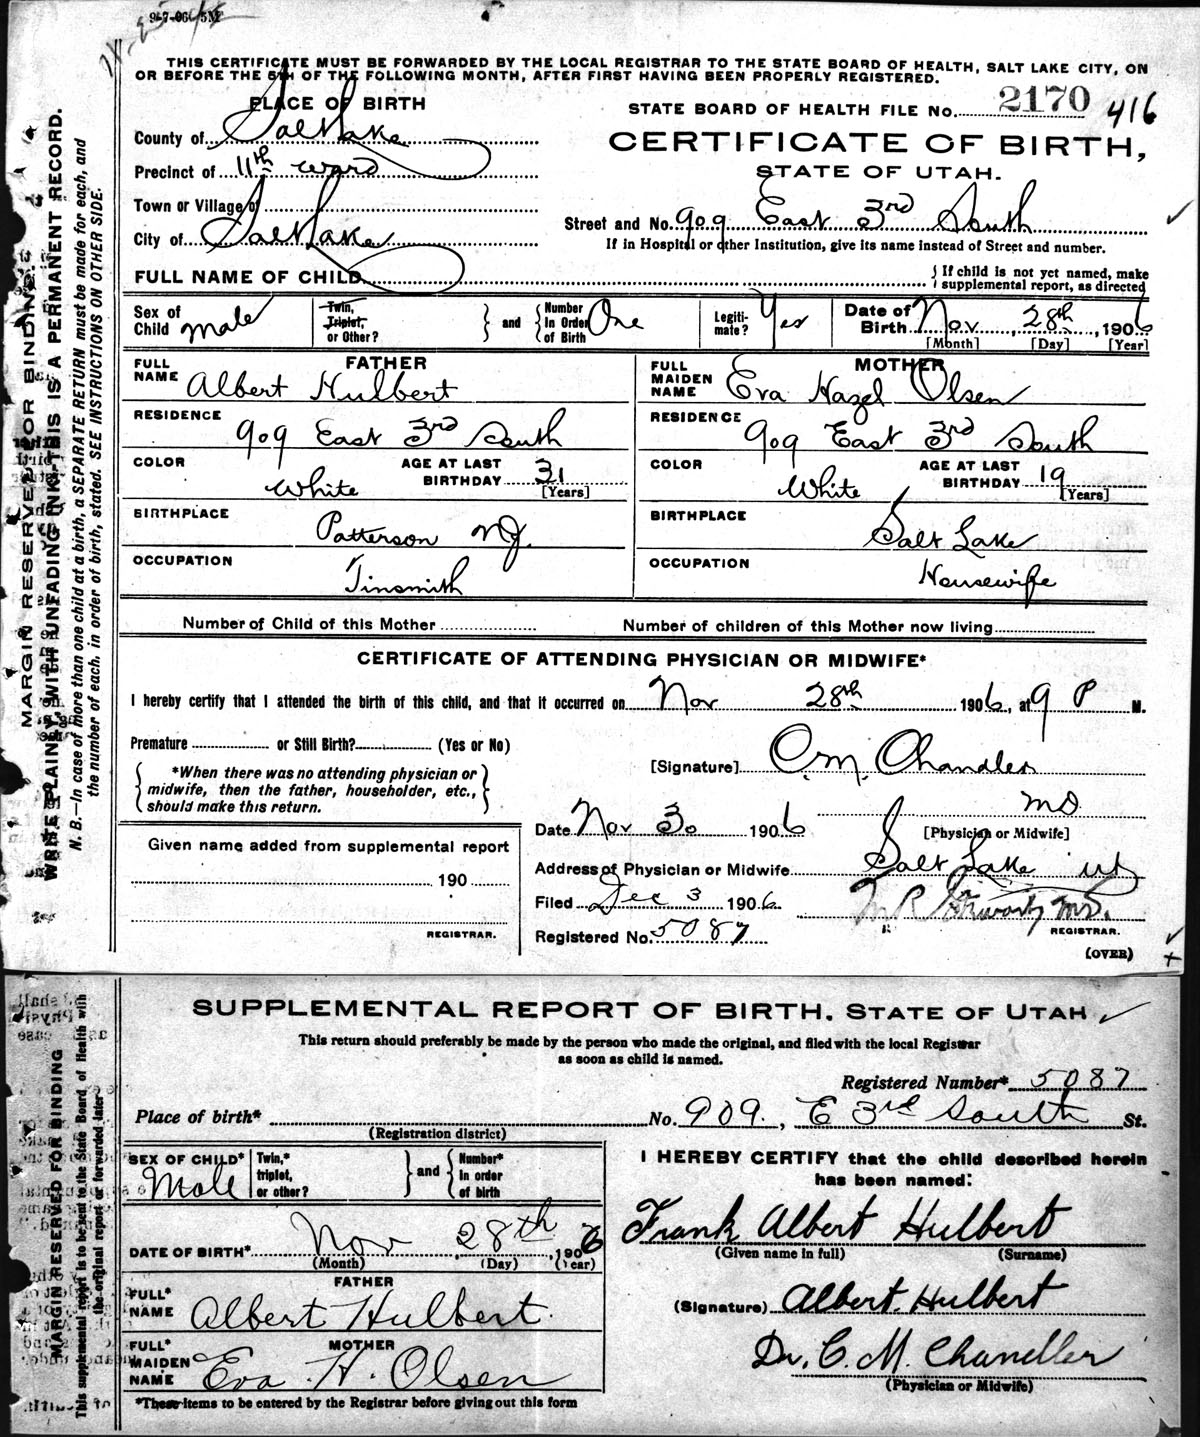 9-7-06 5M
THIS CERTIFICATE MUST BE FORWARDED BY THE LOCAL REGISTRAR TO THE STATE BOARD OF HEALTH, SALT LAKE CITY, ON
OR BEFORE THE 5TH OF THE FOLLOWING MONTH, AFTER FIRST HAVING BEEN PROPERLY REGISTERED.
PLACE OF BIRTH
STATE BOARD OF HEALTH FILE No. 2170 416
County of Salt Lake
CERTIFICATE OF BIRTH,
Precinct of 11th ward
STATE OF UTAH.
Town or Village of
Street and No. 909 East 3rd South
City of Salt Lake
If in Hospital or other Institution, give its name instead of Street and number.
FULL NAME OF CHILD
If child is not yet named, make
supplemental report, as directed
Sex of Child Male
Twin, Triplet, or Other?
and
Number In Order of Birth One
Legiti-mate? Yes
Date of Birth Nov, 28th, 1906
[Month] [Day] [Year]
FATHER
FULL NAME Albert Hulbert
RESIDENCE 909 East 3rd South
COLOR White
AGE AT LAST BIRTHDAY 31
[Years]
BIRTHPLACE Patterson NJ.
OCCUPATION Tinsmith
MOTHER
FULL MAIDEN NAME Eva Hazel Olsen
RESIDENCE 909 East 3rd South
COLOR White
AGE AT LAST BIRTHDAY 19
[Years]
BIRTHPLACE Salt Lake
OCCUPATION Housewife
Number of Child of this Mother
Number of children of this Mother now living
CERTIFICATE OF ATTENDING PHYSICIAN OR MIDWIFE*
I hereby certify that I attended the birth of this child, and that it occurred on Nov 28th 1906, at 9 P M.
Premature or Still Birth? (Yes or No)
[Signature] C. M. Chandler
*When there was no attending physician or
midwife, then the father, householder, etc.,
should make this return.
MD
Date Nov 30 1906
[Physician or Midwife]
Given name added from supplemental report
190
REGISTRAR.
Address of Physician or Midwife Salt Lake ut
Filed Dec 3 1906
M R MD.
REGISTRAR.
Registered No. 5087
(OVER)
MARGIN RESERVED FOR BINDING
WRITE PLAINLY, WITH UNFADING INK-THIS IS A PERMANENT RECORD.
N. B.—In case of more than one child at a birth, a SEPARATE RETURN must be made for each, and
the number of each, in order of birth, stated. SEE INSTRUCTIONS ON OTHER SIDE.
SUPPLEMENTAL REPORT OF BIRTH, STATE OF UTAH
This return should preferably be made by the person who made the original, and filed with the local Registrar
as soon as child is named.
Registered Number* 5087
Place of birth* No. 909., E 3rd South St.
(Registration district)
SEX OF CHILD* Male
Twin,* triplet, or other?
and
Number* in order of birth
I HEREBY CERTIFY that the child described herein
has been named:
Frank Albert Hulbert
(Given name in full) (Surname)
DATE OF BIRTH* Nov, 28th, 1906
(Month) (Day) (Year)
FATHER
FULL* NAME Albert Hulbert.
(Signature) Albert Hulbert
MOTHER
FULL* MAIDEN NAME Eva. H. Olsen
Dr. C. M. Chandler
(Physician or Midwife)
*These items to be entered by the Registrar before giving out this form
MARGIN RESERVED FOR BINDING
This supplemental report to be sent to the State Board of Health with
the original report or forwarded later